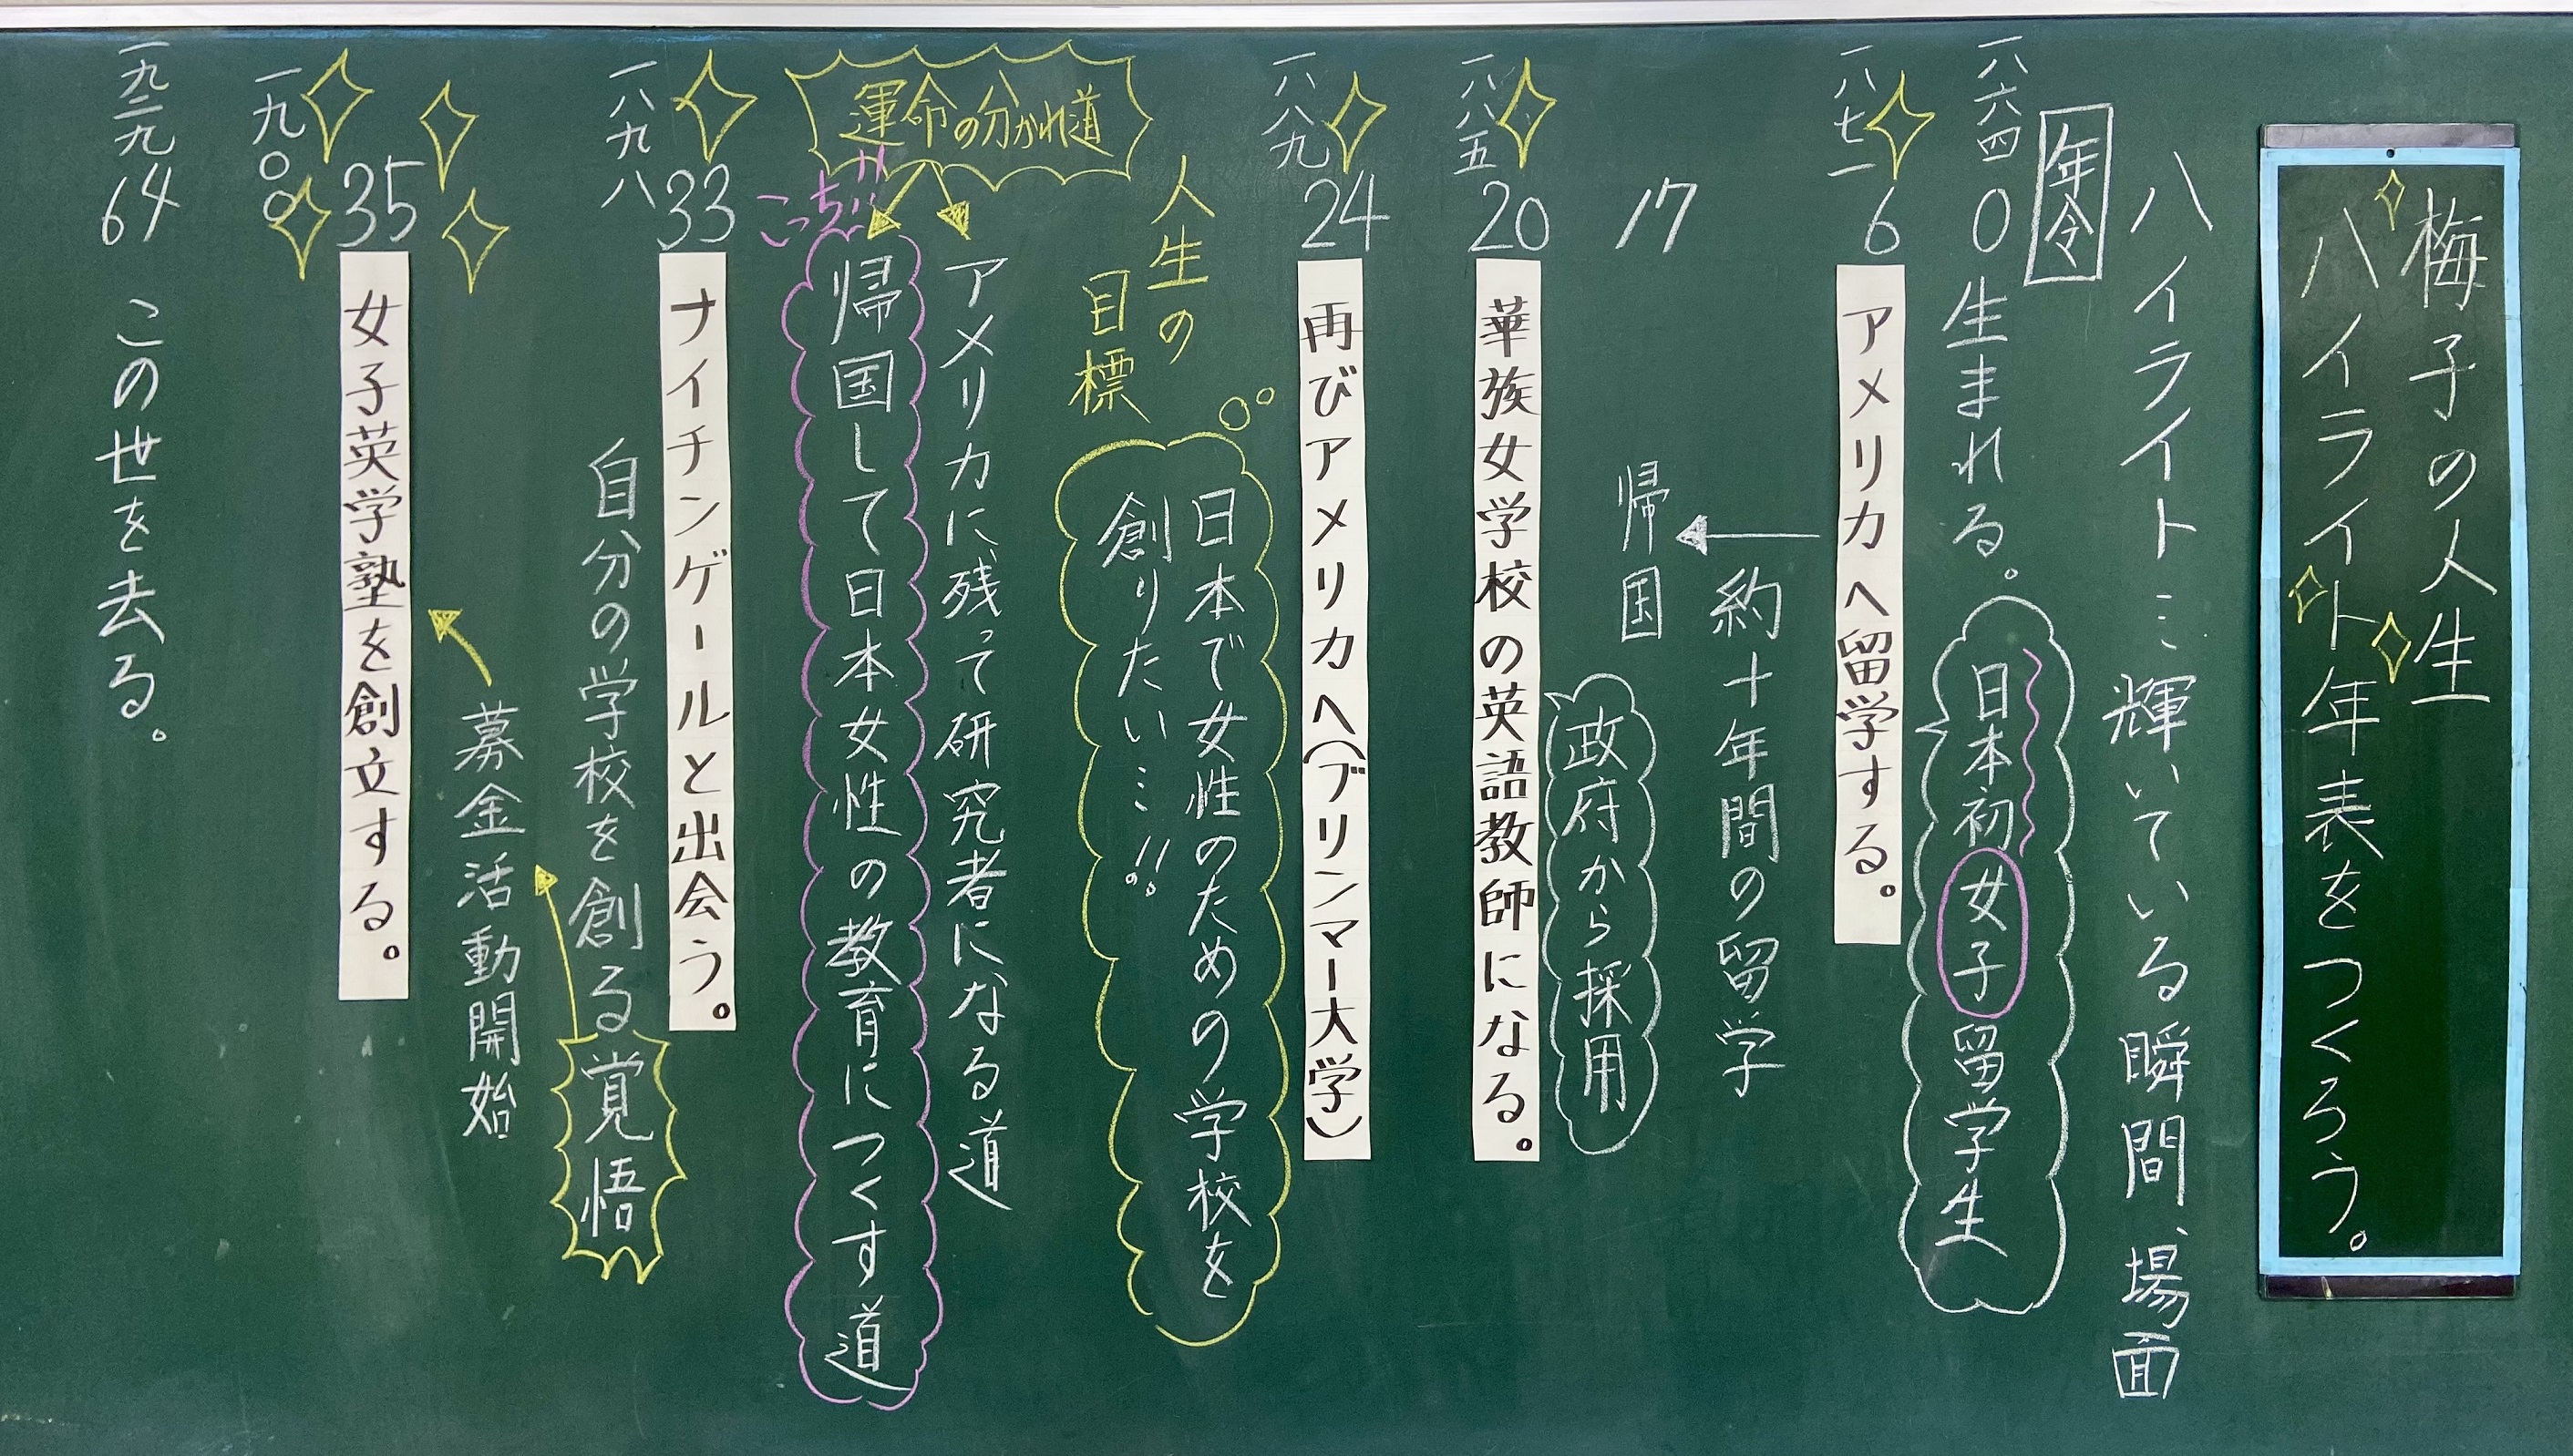 梅子の人生
ハイライト年表をつくろう。
ハイライト…輝いている瞬間、場面
年令
一八六四
0
生まれる。
日本初女子留学生
一八七一
6
アメリカへ留学する。
約十年間の留学
17
帰国
政府から採用
一八八五
20
華族女学校の英語教師になる。
一八八九
24
再びアメリカへ(ブリンマー大学)
人生の
目標
日本で女性のための学校を
創りたい…!!
運命の分かれ道
アメリカに残って研究者になる道
こっち!!
帰国して日本女性の教育につくす道
一八九八
33
ナイチンゲールと出会う。
自分の学校を創る覚悟
募金活動開始
一九〇〇
35
女子英学塾を創文する。
一九二九
64
この世を去る。